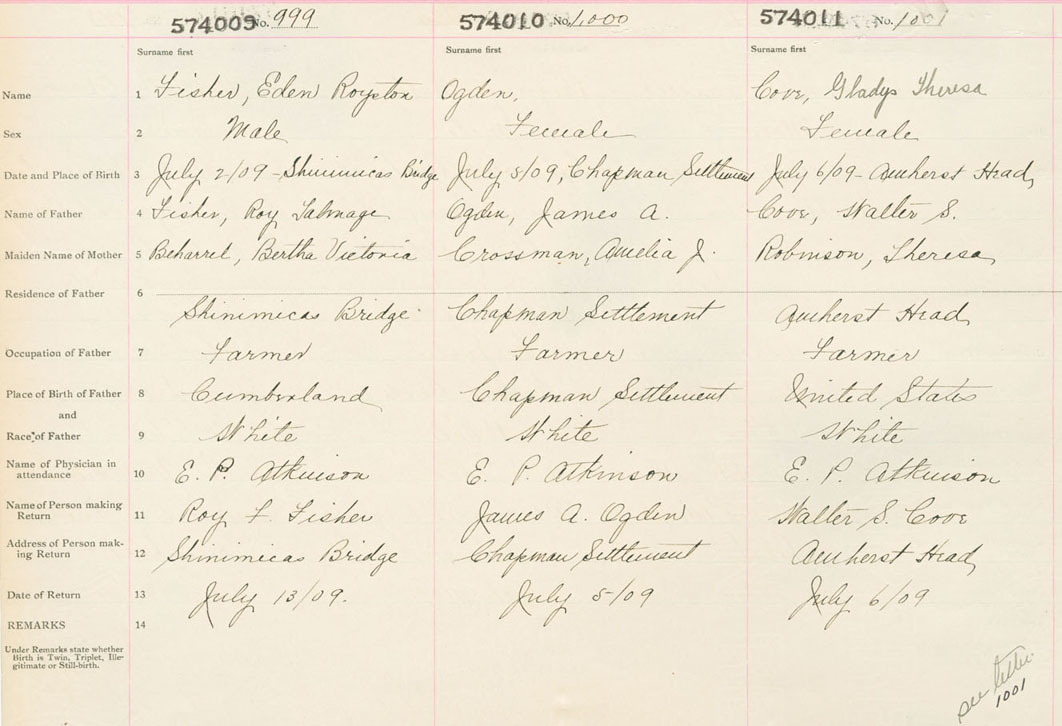 574009 No. 999 574010 No. 1,000 574011 No. 1001
Surname first Surname first Surname first
Name 1 Fisher, Eden Royston Ogden, Cove, Gladys Theresa
Sex 2 Male Female Female
Date and Place of Birth 3 July 2/09 - Shinimicas Bridge July 5/09, Chapman Settlement July 6/09 - Amherst Head,
Name of Father 4 Fisher, Roy Talmage Ogden, James A. Cove, Walter S.
Maiden Name of Mother 5 Beharrel, Bertha Victoria Crossman, Amelia J. Robinson, Theresa
Residence of Father 6 Shinimicas Bridge Chapman Settlement Amherst Head,
Occupation of Father 7 Farmer Farmer Farmer
Place of Birth of Father 8 Cumberland Chapman Settlement United States
and
Race of Father 9 White White White
Name of Physician in
attendance 10 E. P. Atkinson E. P. Atkinson E. P. Atkinson
Name of Person making
Return 11 Roy T. Fisher James A. Ogden Walter S. Cove
Address of Person mak-
ing Return 12 Shinimicas Bridge Chapman Settlement Amherst Head,
Date of Return 13 July 13/09. July 5/09 July 6/09
REMARKS 14
Under Remarks state whether
Birth is Twin, Triplet, Ille-
gitimate or Still-birth.
see letter
1001